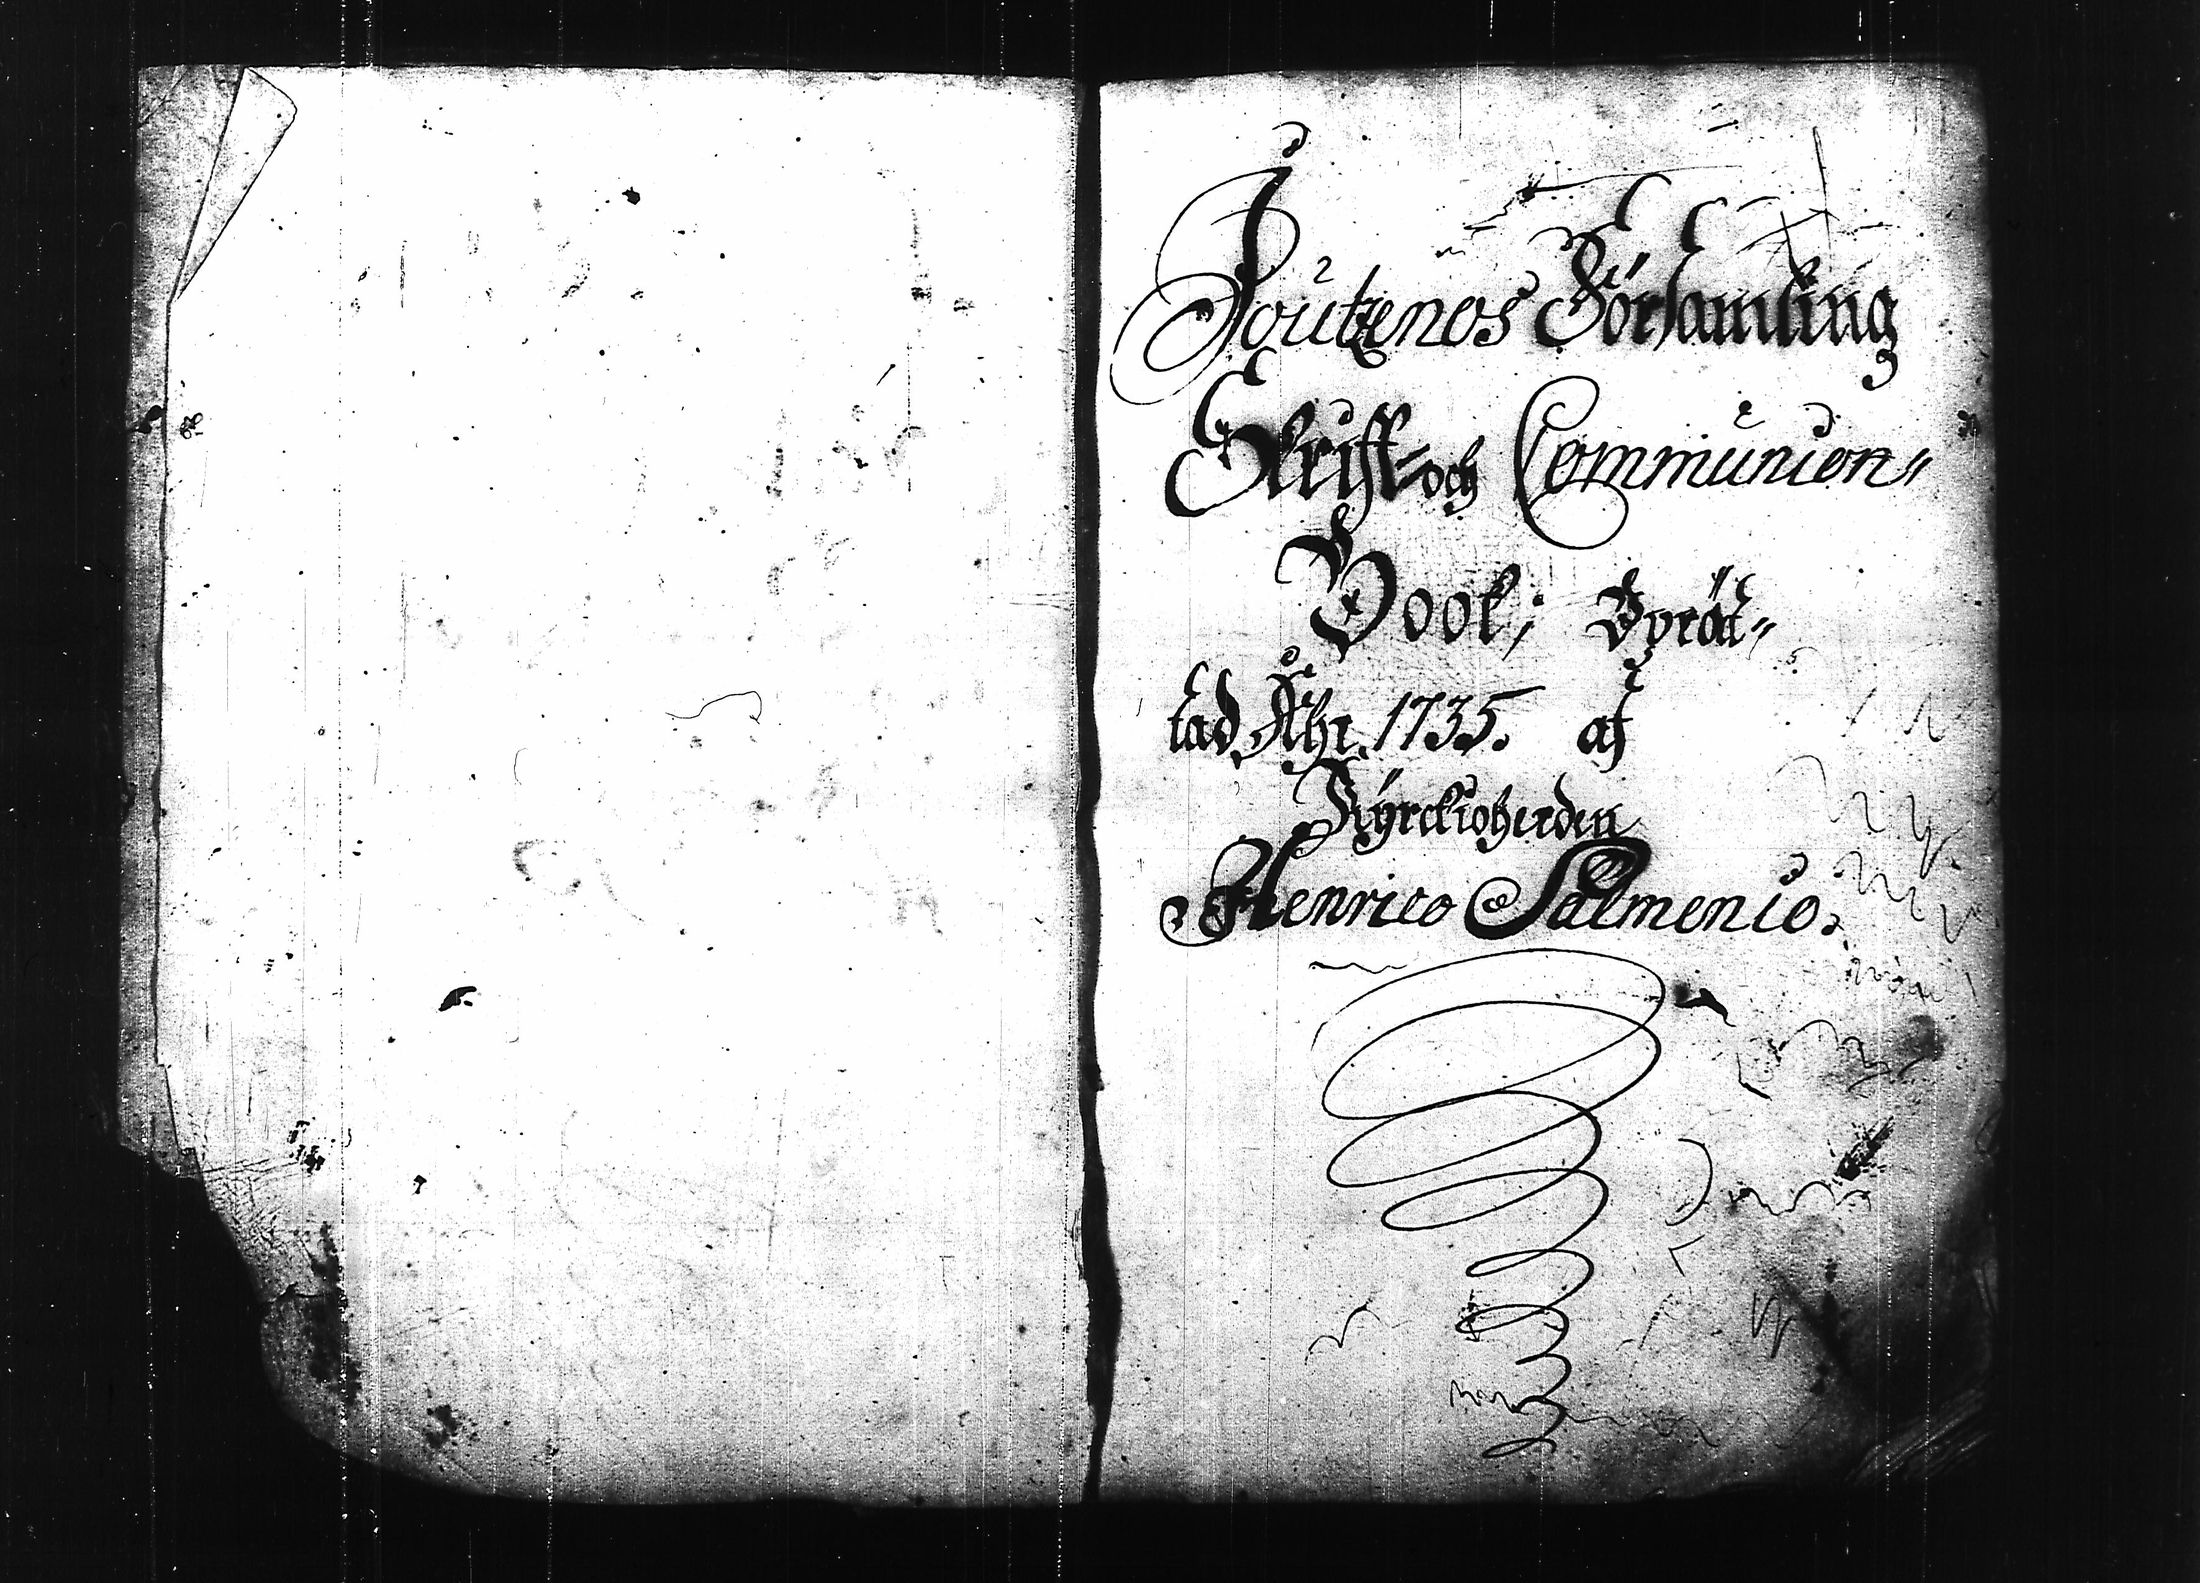 Joutzenos Församling
Skrifft= och Communion=
Book; Oprät=
tad Åhr. 1735. af
Kyrckioherden
Henrico Salmenio.